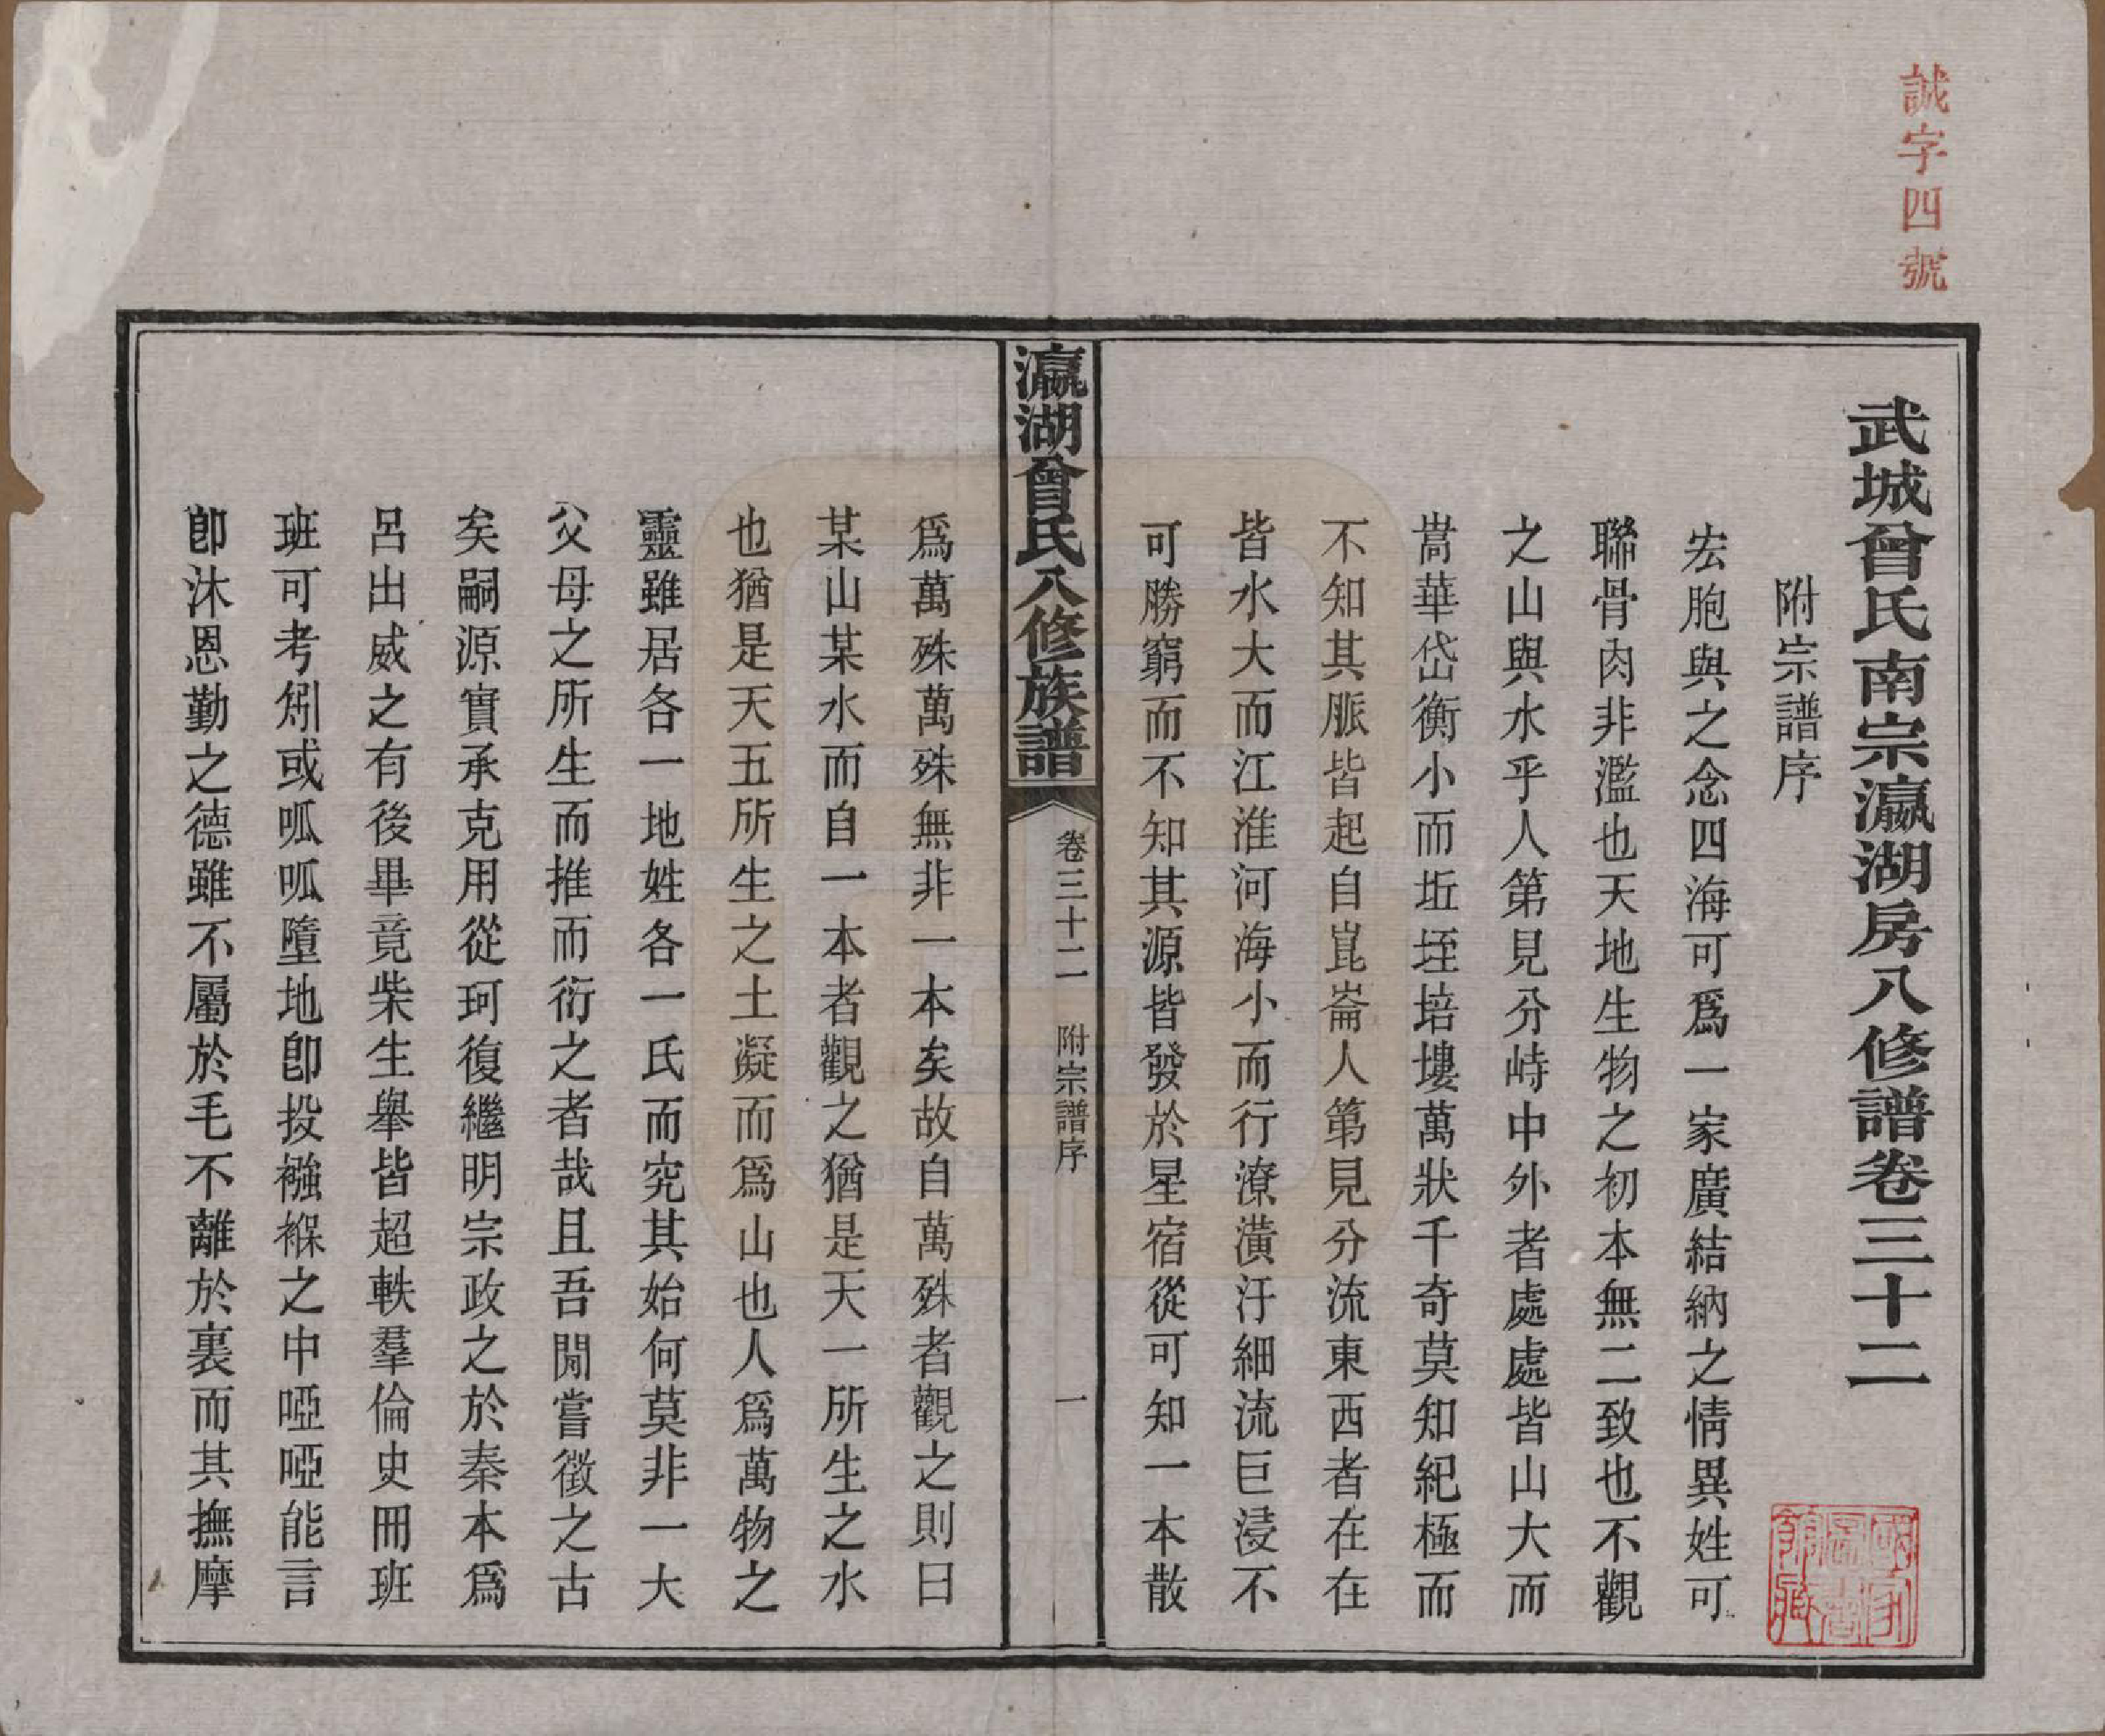 誠字四號
武城曾氏南宗瀛湖房八修譜卷三十二
附宗譜序
宏胞與之念四海可爲一家廣結納之情異姓可
聯骨肉非濫也天地生物之初本無二致也不觀
之山與水乎人第見分峙中外者處處皆山大而
嵩華岱衡小而坵垤培塿萬狀千奇莫知紀極而
不知其脈皆起自崑崙人第見分流東西者在在
皆水大而江淮河海小而行潦潢汙細流巨浸不
可勝窮而不知其源皆發於星宿從可知一本散
瀛湖曾氏八修族譜
卷三十二
附宗譜序
一
爲萬殊萬殊無非一本矣故自萬殊者觀之則曰
某山某水而自一本者觀之猶是天一所生之水
也猶是天五所生之土凝而爲山也人爲萬物之
靈雖居各一地姓各一氏而究其始何莫非一大
父母之所生而推而衍之者哉且吾閒嘗徵之古
矣嗣源實承克用從珂復繼明宗政之於秦本爲
呂出威之有後畢竟柴生舉皆超軼羣倫史冊班
班可考矧或呱呱墮地卽投襁褓之中啞啞能言
卽沐恩勤之德雖不屬於毛不離於裏而其撫摩